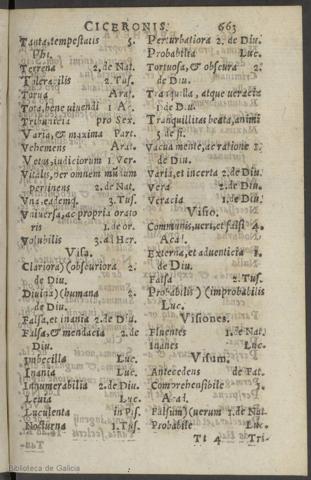 CICERONIS. 663
Tanta, tempestatis 5.
Phi.
Terrena 2. de Nat.
Tolerabilis 2. Tus.
Torua Arat.
Tota, bene viuendi 1. Ac.
Tribunicia pro Sex.
Varia, & maxima Part.
Vehemens Arat.
Vetus, iudiciorum 1. Ver.
Vitalis, per omnem mũdum
pertinens 2. de Nat.
Vna, eademq. 3. Tus.
Vniuersa, ac propria orato
ris 1. de or.
Volubilis 3. ad Her.
Visa.
Clariora) (obscuriora 2.
de Diu.
Diuina) (humana 2.
de Diu.
Falsa, et inania 2. de Diu.
Falsa, & mendacia 2. de
Diu.
Imbecilla Luc.
Inania Luc.
Innumerabilia 2. de Diu.
Leuia Luc.
Luculenta in Pis.
Nocturna 1. Tus.
Perturbatiora 2. de Diu.
Probabilia Luc.
Tortuosa, & obscura 2.
de Diu.
Tranquilla, atque veracia
1. de Diu.
Tranquillitas beata, animi
5. de fi.
Vacua mente, ac ratione 2.
de Diu.
Varia, et incerta 2. de Diu.
Vera 2. de Diu.
Veracia 1. de Diu.
Visio.
Communis, veri, et falsi 4.
Acad.
Externa, et aduenticia 1.
de Diu.
Falsa 2. Tus.
Probabilis) (improbabilis
Luc.
Visiones.
Fluentes 1. de Nat.
Inanes Luc.
Visum.
Antecedens de Fat.
Comprehensibile 3.
Acad.
Falsum) (uerum 2. de Nat.
Probabile Luc.
Tt 4 Tri-
Biblioteca de Galicia